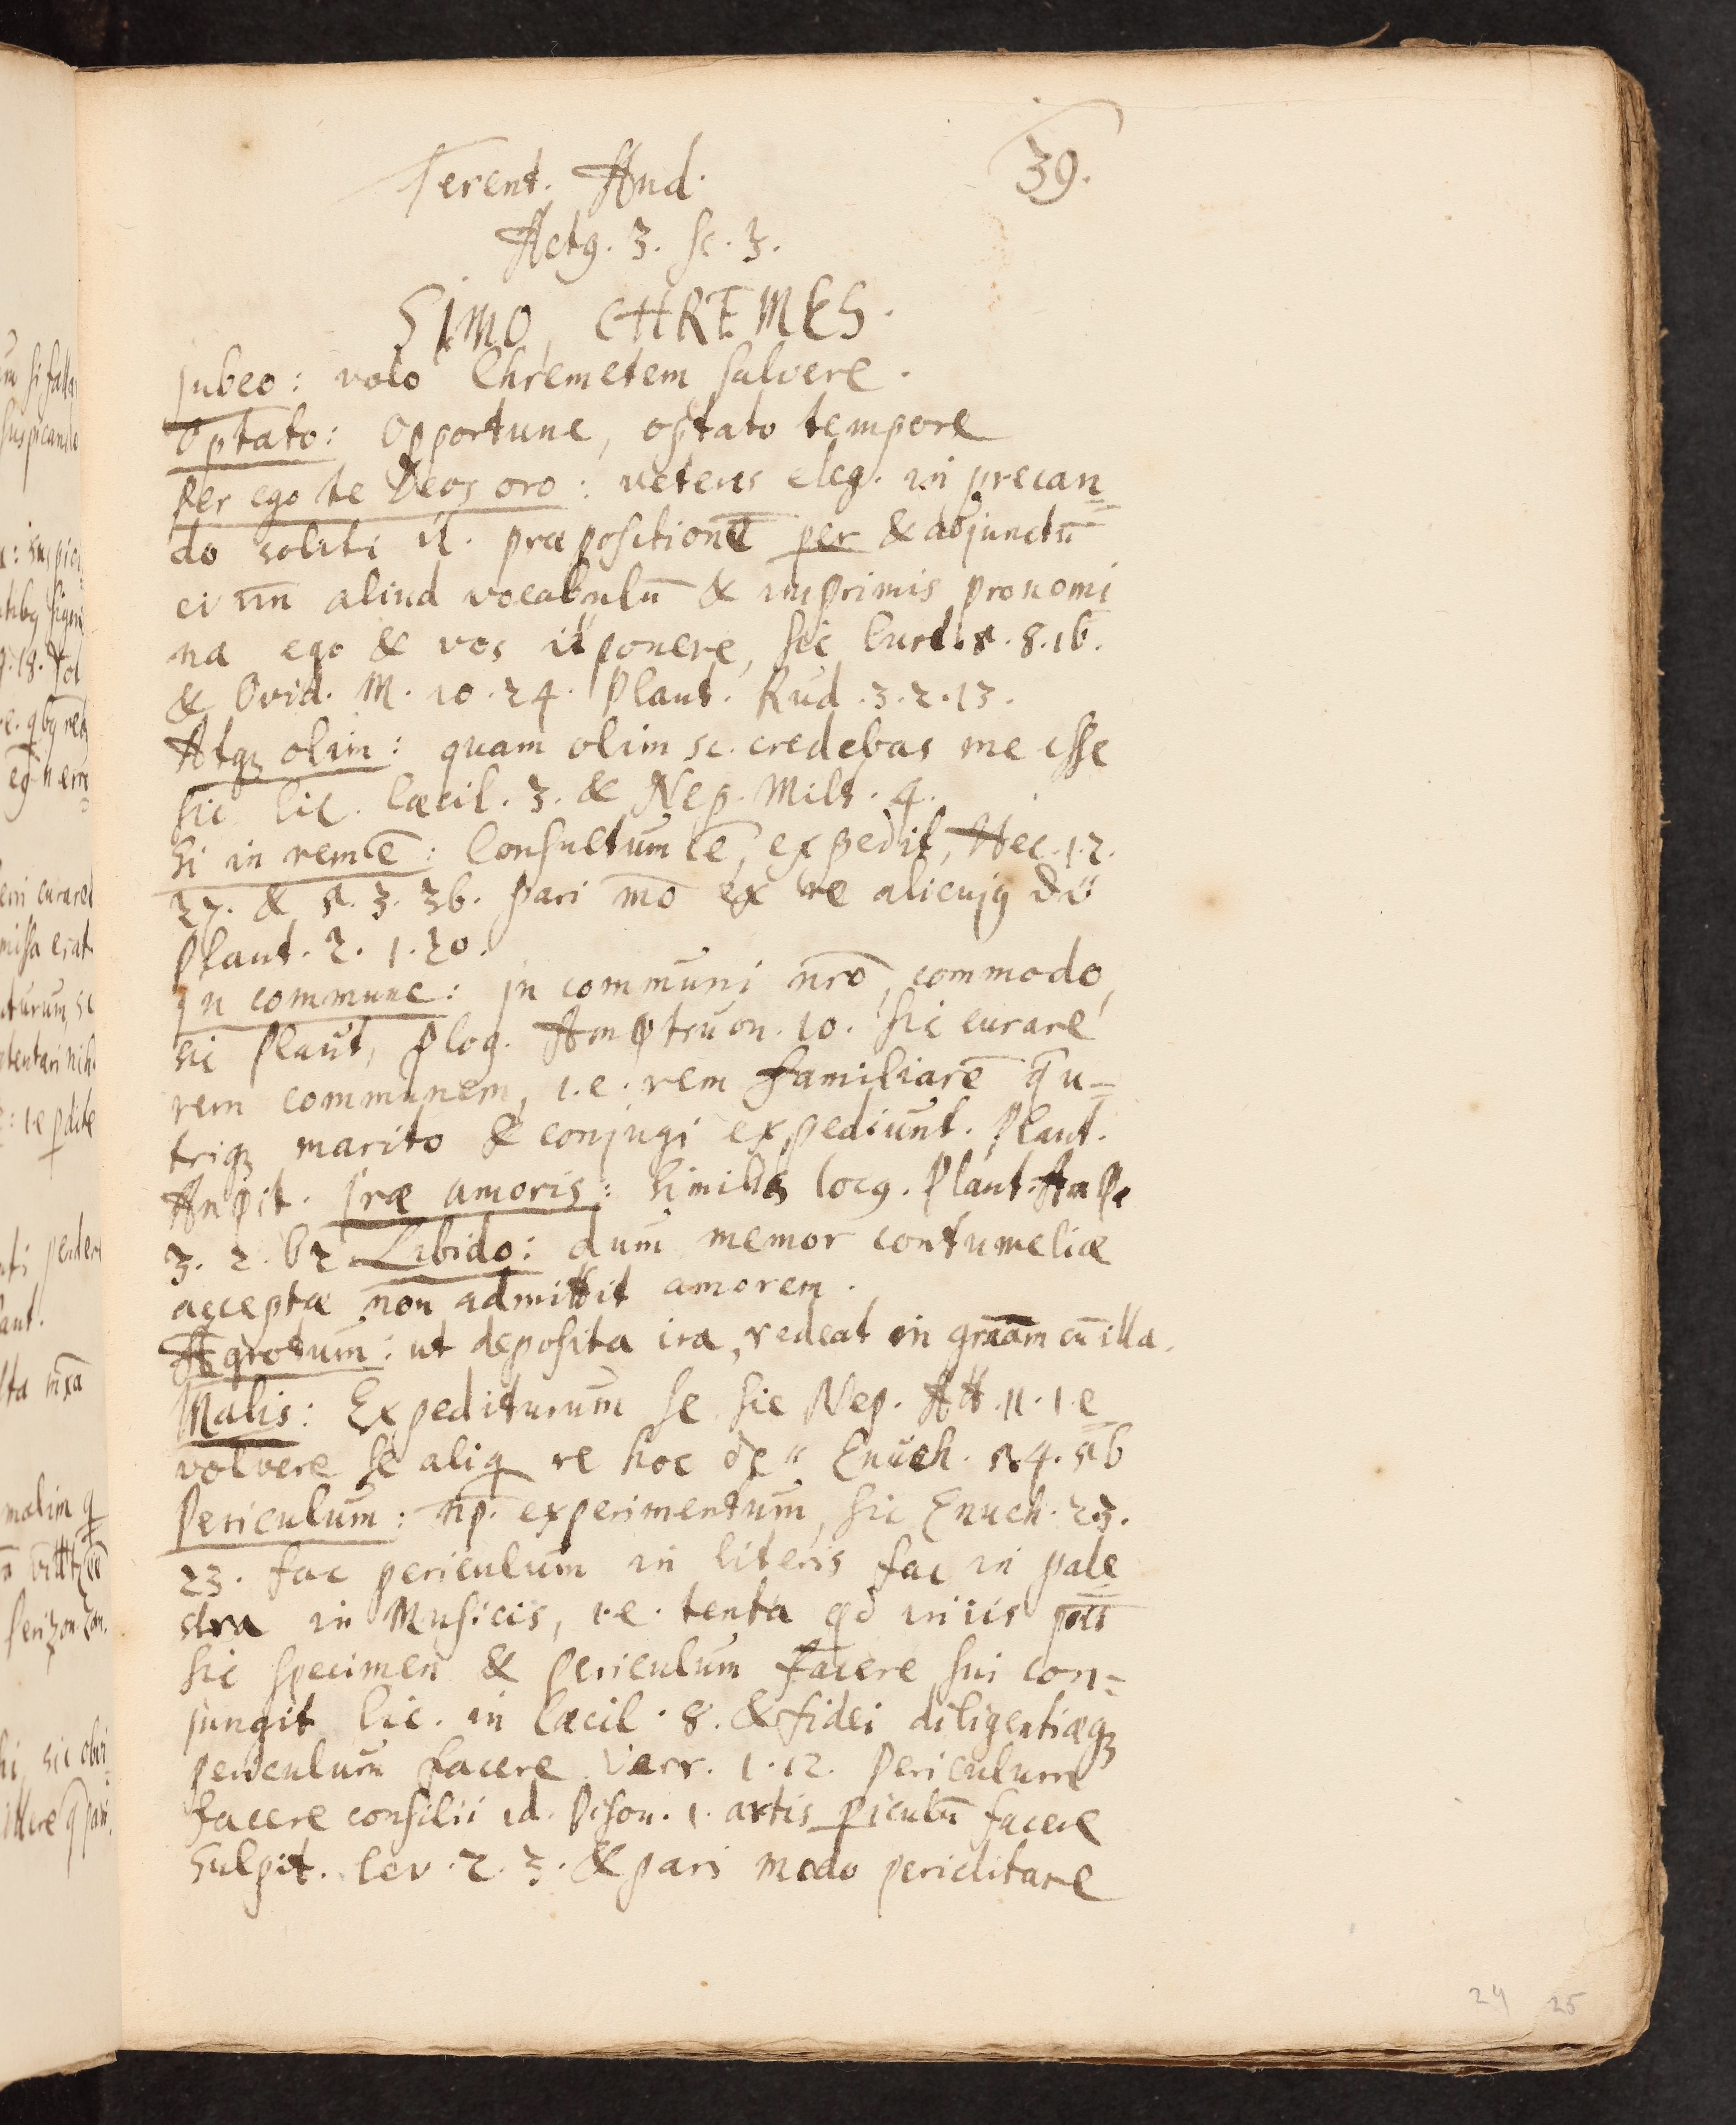 39.
Terent. And.
Actꝰ. 3. sc. 3.
SIMO, CHREMES.
Jubeo: volo Chremetem salvere.
Optato: Opportune, optato tempore
Per ego te Deos oro: veteres eleg. in precan=
do soliti præpositionē per & adjunctū
ei aliud vocabulū & inprimis pronomi
na ego & vos ponere, sic Curt. 5. 8. 16.
& Ovid. M. 10. 24. Plaut. Rud. 3. 2. 13.
Atqꝫ olim: quam olim sc. credebas me esse
sic Cic. Cæcil. 3. & Nep. Milt. 4.
Si in rem ē: Consultum ē, expedit, Hec. 1. 2.
27. & 5. 3. 36. Pari mō ex re alicujꝰ
Plaut. 2. 1. 20.
In commune: in communi nrō, commodo,
sic Plaut, Plog. Amphtruon. 10. Sic curare
rem communem, i.e. rem familiarē q u=
triqꝫ marito & conjugi expediunt. Plaut.
Ampit. Iræ amoris: similis locꝰ. Plaut. Amp
3. 2. 62 Libido: dum memor contumeliæ
acceptæ non admittit amorem.
Ægrotum: ut deposita ira, redeat in graam cū illa.
Malis: Expediturum se sic Nep. Att. 11. 1. e
volvere se aliq re hoc Enuch. 5. 4. 5b
Periculum: np. experimentum, sic Enuch. 2 3.
23. fac periculum in literis fac in pale
stra in Musicis, i.e. tenta qd in iis
Sic specimen & periculum facere sui con=
jungit Cic. in Cæcil. 8. & fidei diligentiæqꝫ
periculum facere Verr. 1. 12. Periculum
facere consilii id. Pison. 1. artis piculū facere
Sulpit. Sev. 2. 3. & pari modo periclitare
24 25